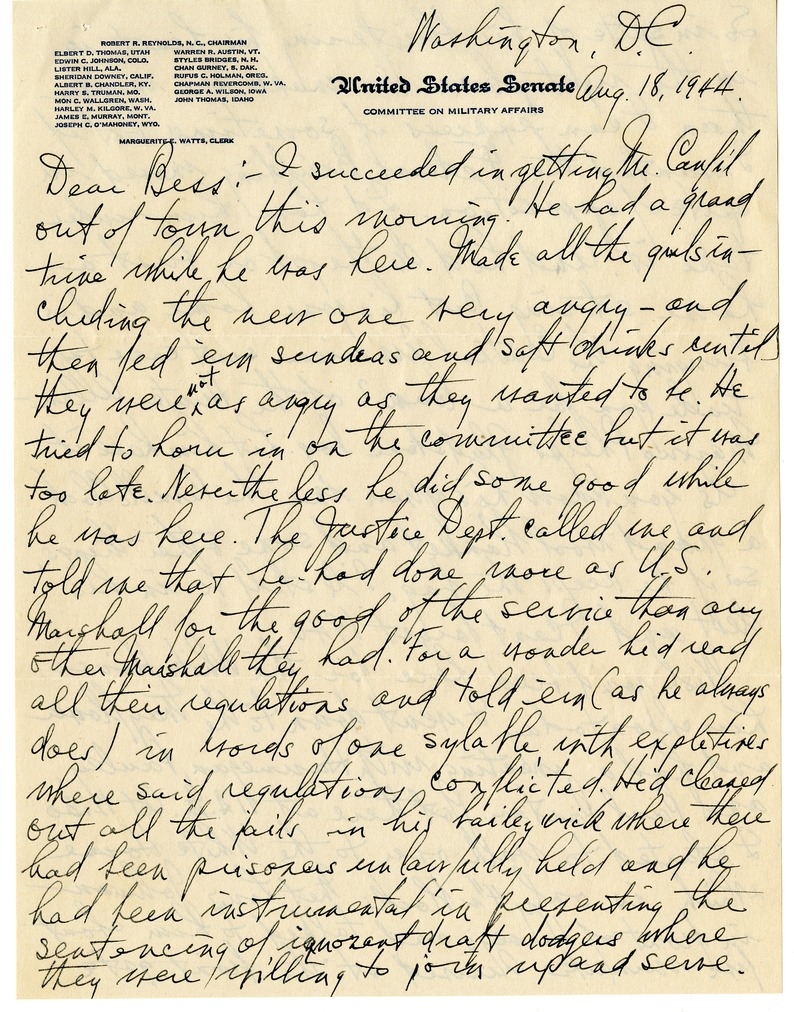 Washington, D.C.
ROBERT R. REYNOLDS, N. C., CHAIRMAN
ELBERT D. THOMAS, UTAH
EDWIN C. JOHNSON, COLO.
LISTER HILL, ALA.
SHERIDAN DOWNEY, CALIF.
ALBERT B. CHANDLER, KY.
HARRY S. TRUMAN, MO.
MON C. WALLGREN, WASH.
HARLEY M. KILGORE, W. VA.
JAMES E. MURRAY, MONT.
JOSEPH C. O'MAHONEY, WYO.
WARREN R. AUSTIN, VT.
STYLES BRIDGES, N. H.
CHAN GURNEY, S. DAK.
RUFUS C. HOLMAN, OREG.
CHAPMAN REVERCOMB, W. VA.
GEORGE A. WILSON, IOWA
JOHN THOMAS, IDAHO
MARGUERITE E. WATTS, CLERK
United States Senate
COMMITTEE ON MILITARY AFFAIRS
Aug. 18, 1944.
Dear Bess:- I succeeded in getting Mr. Canfil
out of town this morning. He had a grand
time while he was here. Made all the girls in-
cluding the new one very angry - and
then fed 'em sundeas and soft drinks until
they were not as angry as they wanted to be. He
tried to horn in on the committee but it was
too late. Nevertheless he did some good while
he was here. The Justice Dept. called me and
told me that he had done more as U.S.
Marshall for the good of the service than any
other Marshall they had. For a wonder he'd read
all their regulations and told 'em (as he always
does) in words of one sylable with expletives
where said regulations conflicted. He'd cleaned
out all the jails in his baileywick where there
had been prisoners unlawfully held and he
had been instrumental in preventing the
sentencing of ignorant draft dodgers where
they were willing to join up and serve.